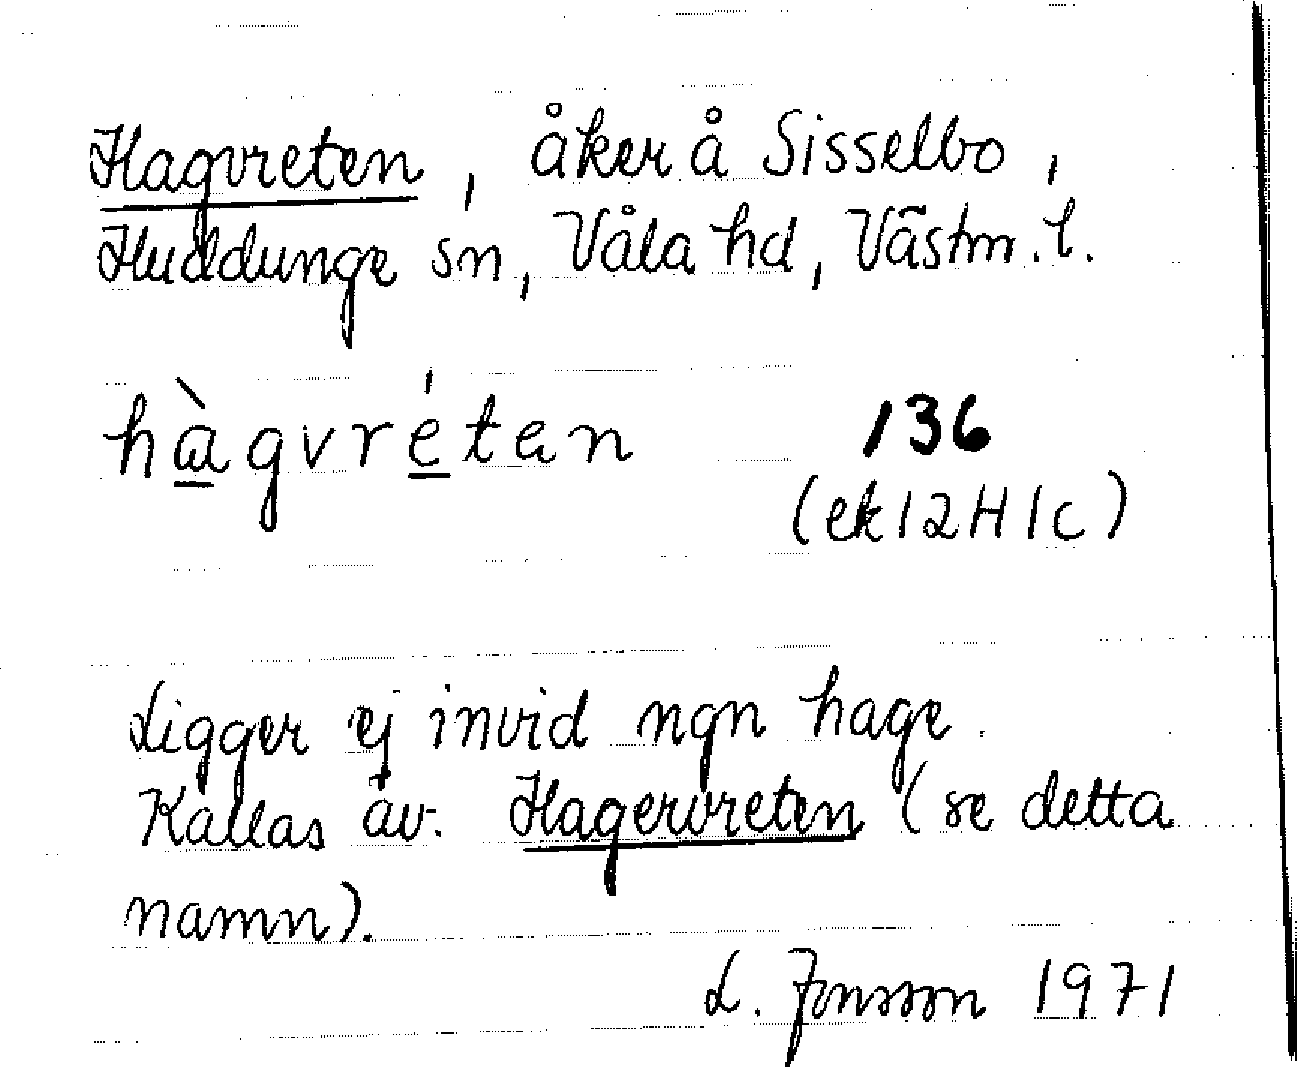 Hagvreten, åker å Sisselbo,
Huddunge sn, Våla hd, Västm. l.
hàgvréten 136
(ek 12H1c)
Ligger ej invid ngn hage.
Kallas äv. Hagervreten (se detta
namn).
L. Jonsson 1971